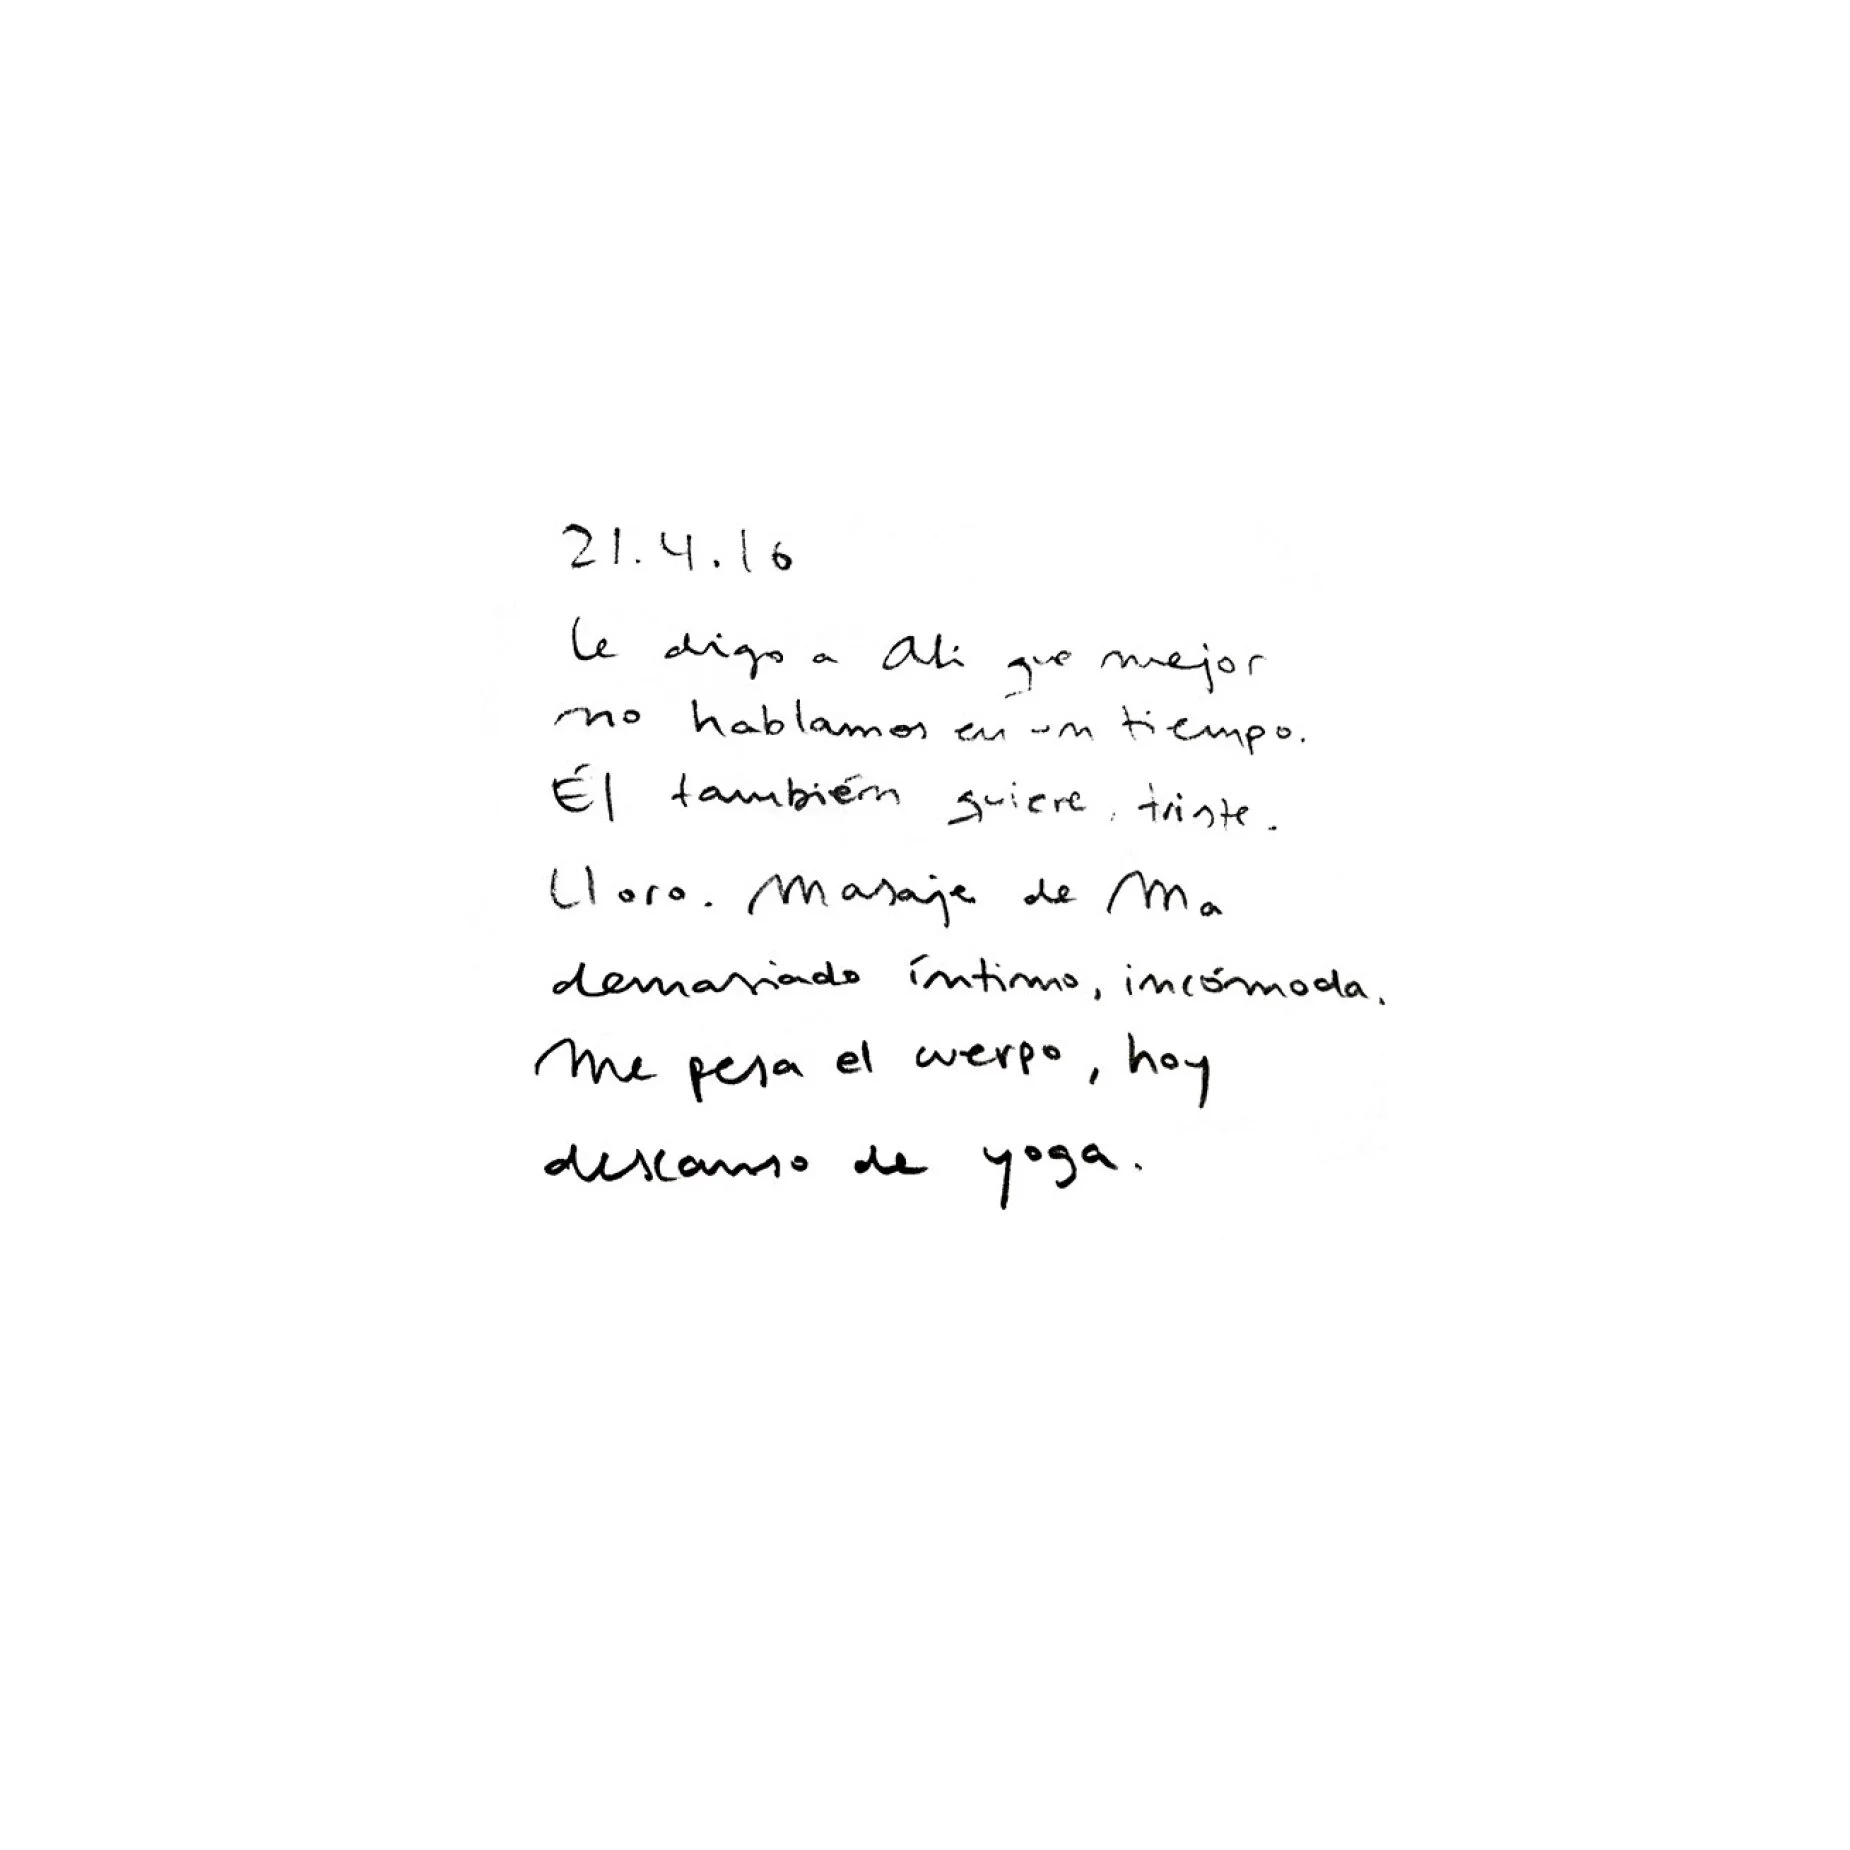 21.4.16
Le digo a Ali que mejor
no hablamos en un tiempo.
Él también quiere, triste.
Lloro. Masaje de Ma
demasiado íntimo, incómoda.
Me pesa el cuerpo, hoy
descanso de yoga.